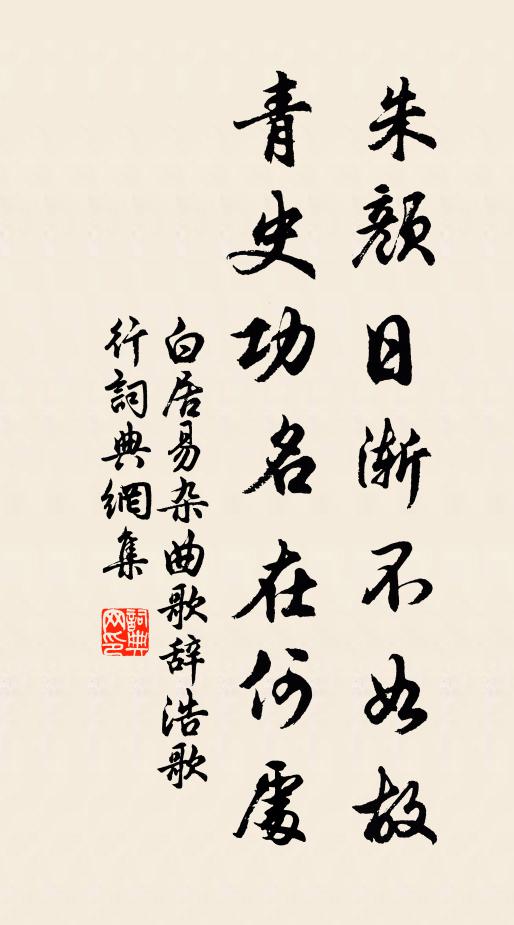 朱颜日渐不如故
青史功名在何處
白居易杂曲歌辞浩歌
行詞典網集
詞典
网印